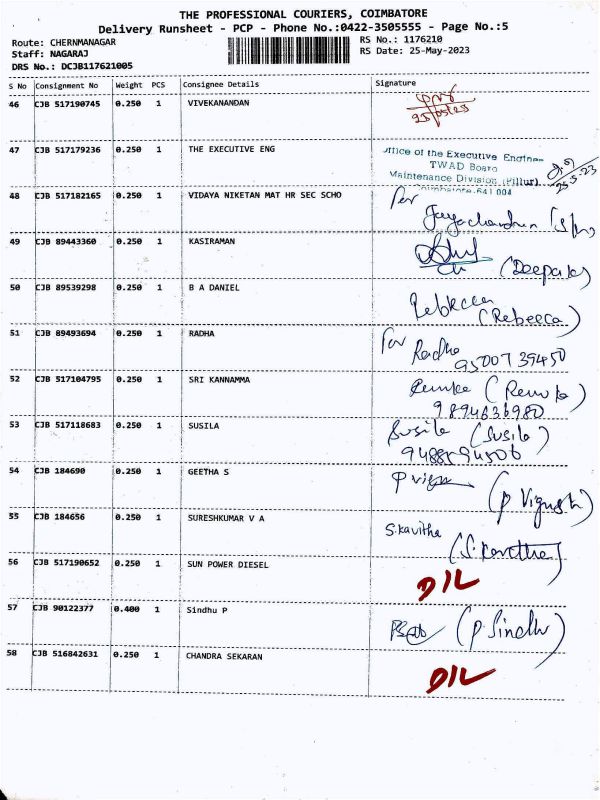 THE PROFESSIONAL COURIERS, COIMBATORE
Delivery Runsheet - PCP - Phone No.:0422-3505555 - Page No.:5
Route: CHERNMANAGAR RS No.: 1176210
Staff: NAGARAJ RS Date: 25-May-2023
DRS No.: DCJB117621005
S No Consignment No Weight PCS Consignee Details Signature
46 CJB 517190745 0.250 1 VIVEKANANDAN
25/05/23
47 CJB 517179236 0.250 1 THE EXECUTIVE ENG
Office of the Executive Engineer
TWAD Board
Maintenance Division (Pillur)
Coimbatore-641 004
25-5-23
48 CJB 517182165 0.250 1 VIDAYA NIKETAN MAT HR SEC SCHO
For
Jayachandran
49 CJB 89443360 0.250 1 KASIRAMAN
(Deepa
50 CJB 89539298 0.250 1 B A DANIEL
Rebecca
(Rebeeca)
51 CJB 89493694 0.250 1 RADHA
For Radha
95007 39450
52 CJB 517104795 0.250 1 SRI KANNAMMA
(Renuka)
9894636980
53 CJB 517118683 0.250 1 SUSILA
Susila (Susila)
9488594506
54 CJB 184690 0.250 1 GEETHA S
P Vign
(P Vignesh)
55 CJB 184656 0.250 1 SURESHKUMAR V A
S.kavitha
(S.kavitha)
56 CJB 517190652 0.250 1 SUN POWER DIESEL
D/L
57 CJB 90122377 0.400 1 Sindhu P
(P.Sindhu)
58 CJB 516842631 0.250 1 CHANDRA SEKARAN
D/L